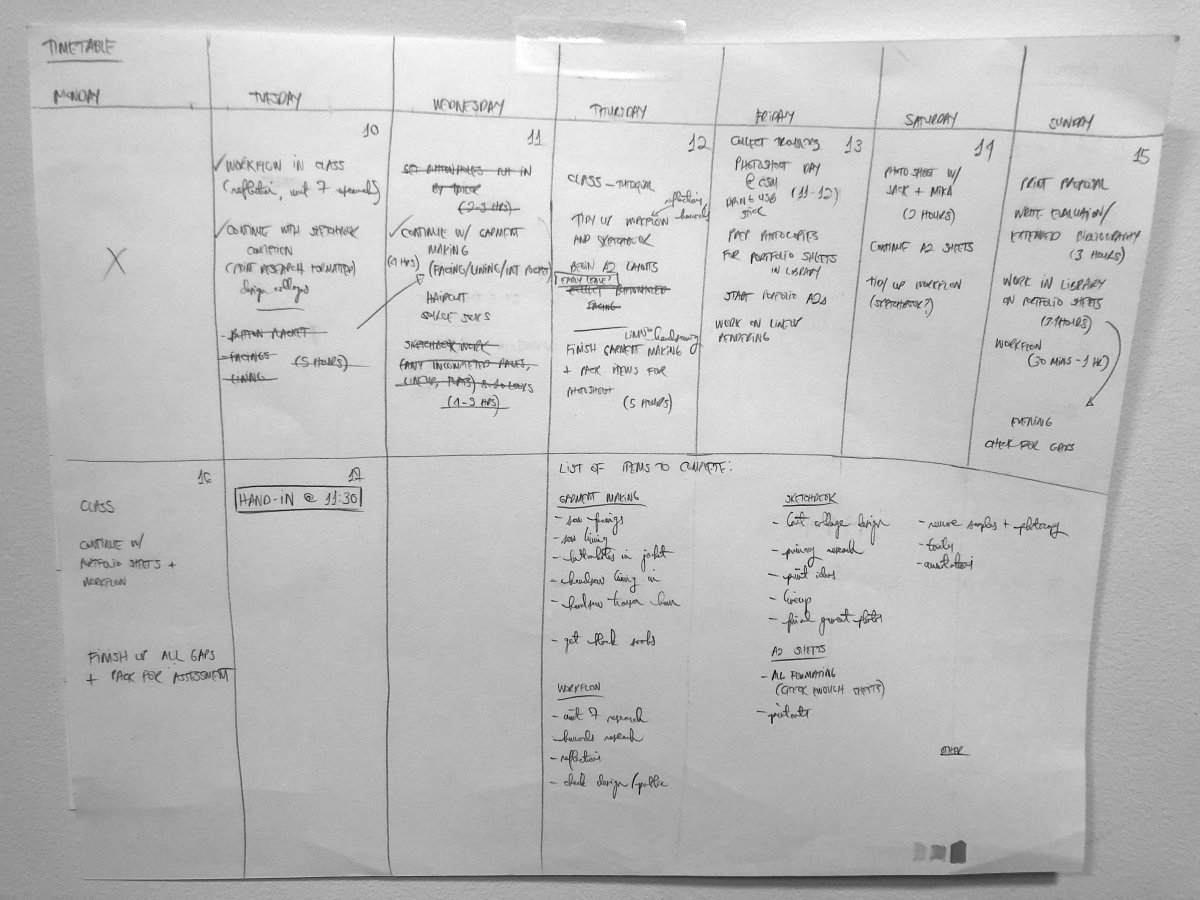 TIMETABLE
MONDAY
X
TUESDAY
10
✓ WORKFLOW IN CLASS
(reflection, unit 7 research)
✓ CONTINUE WITH SKETCHBOOK
(PRINT RESEARCH FORMATTED)
design collages
- BUTTON PLACKET
- FACINGS (5 HOURS)
- LINING
WEDNESDAY
11
SET BUTTONHOLES PUT IN
BY
(2-3 HRS)
✓ CONTINUE W/ GARMENT
MAKING
(4 HRS) (FACING/LINING/INT POCKET)
HAIRCUT
SOURCE SOCKS
SKETCHBOOK WORK
(ANY INCOMPLETED PAGES,
LINEUP, FLATS) 8-10 LOOKS
(2-3 HRS)
THURSDAY
12
CLASS - TUTORIAL
reflections
TIDY UP WORKFLOW
AND SKETCHBOOK
BEGIN A2 LAYOUTS
EARLY LEAVE?
COLLECT BUTTONHOLED
FACING
LINING handsewing
FINISH GARMENT MAKING
+ PACK ITEMS FOR
PHOTOSHOOT
(5 HOURS)
FRIDAY
13
COLLECT
PHOTOSHOOT DAY
@ CSM
(11-12)
BRING USB
STICK
PREP PHOTOCOPIES
FOR PORTFOLIO SHEETS
IN LIBRARY
START PORTFOLIO A2s
WORK ON LINEUP
RENDERING
SATURDAY
14
PHOTOSHOOT W/
JACK + MIKA
(2 HOURS)
CONTINUE A2 SHEETS
TIDY UP WORKFLOW
(SKETCHBOOK?)
SUNDAY
15
PRINT PROPOSAL
WRITE EVALUATION/
EXTENDED BIBLIOGRAPHY
(3 HOURS)
WORK IN LIBRARY
ON PORTFOLIO SHEETS
WORKFLOW
(30 MINS - 1 HR)
EVENING
CHECK FOR GAPS
16
CLASS
CONTINUE W/
PORTFOLIO SHEETS +
WORKFLOW
FINISH UP ALL GAPS
+ PACK FOR ASSESSMENT
17
HAND-IN @ 11:30
LIST OF ITEMS TO COMPLETE:
GARMENT MAKING
- sew facings
- sew lining
- buttonholes in jacket
- handsew lining in
- handsew trouser hem
- get black socks
WORKFLOW
- unit 7 research
- research
- reflections
- check design/public
SKETCHBOOK
- collage design
- primary research
- print ideas
- lineup
- final garment photos
A2 SHEETS
- ALL FORMATTING
(CHECK ENOUGH SHEETS)
- printouts
- samples + photocopy
- annotations
OTHER